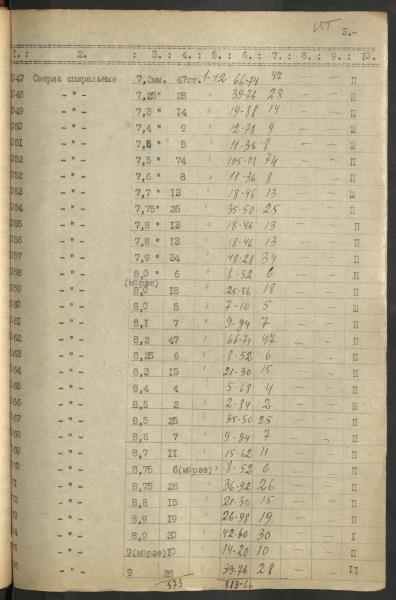 3.-
1.: 2. : 3. : 4. : 5. : 6. : 7. : 8. : 9. : 10.
047 Сверла спиральные 7,2мм. 47ст. 1-42 66-74 47 — — П
048 – " – 7,25" 28 " 39-76 28 — — П
049 – " – 7,3 " 14 " 19-88 14 — — П
050 – " – 7,4 " 9 " 12-78 9 — — Ш
051 – " – 7,5 " 8 " 11-36 8 — — Ш
052 – " – 7,5 " 74 " 105-08 74 — — П
052 – " – 7,6 " 8 " 11-36 8 — — П
053 – " – 7,7 " 13 " 18-46 13 — — Ш
054 – " – 7,75" 25 " 35-50 25 — — П
055 – " – 7,8 " 13 " 18-46 13 — — П
056 – " – 7,8 " 13 " 18-46 13 — — П
057 – " – 7,9 " 34 " 48-28 34 — — П
058 – " – 8,0 " 6 " 8-52 6 — — П
(морзе)
059 – " – 8,0 18 " 25-56 18 — — П
060 – " – 8,0 5 " 7-10 5 — — Ш
061 – " – 8,1 7 " 9-94 7 — — П
062 – " – 8,2 47 " 66-74 47 — — П
063 – " – 8,25 6 " 8-52 6 — — П
064 – " – 8,3 15 " 21-30 15 — — П
065 – " – 8,4 4 " 5-68 4 — — П
066 – " – 8,5 2 " 2-84 2 — — Ш
067 – " – 8,5 25 " 35-50 25 — — П
068 – " – 8,6 7 " 9-94 7 — — П
069 – " – 8,7 11 " 15-62 11 — — П
070 – " – 8,75 6(морзе) " 8-52 6 — — П
71 – " – 8,75 26 " 36-92 26 — — П
72 – " – 8,8 15 " 21-30 15 — — П
73 – " – 8,9 19 " 26-98 19 — — П
74 – " – 8,9 30 " 42-60 30 — — I
75 – " – 9(морзе)10 " 14-20 10 — — П
76 – " – 9 28 39-76 28 — — II
573 813-66